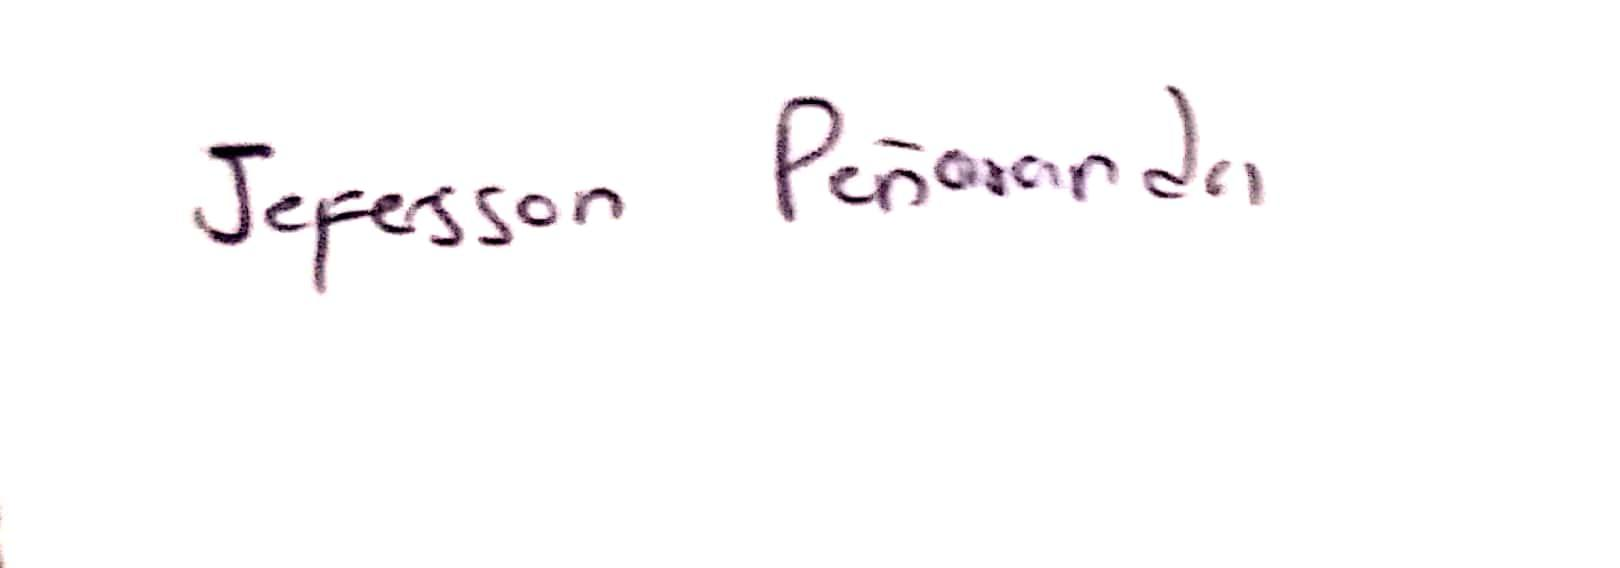 Jefersson Peñaranda